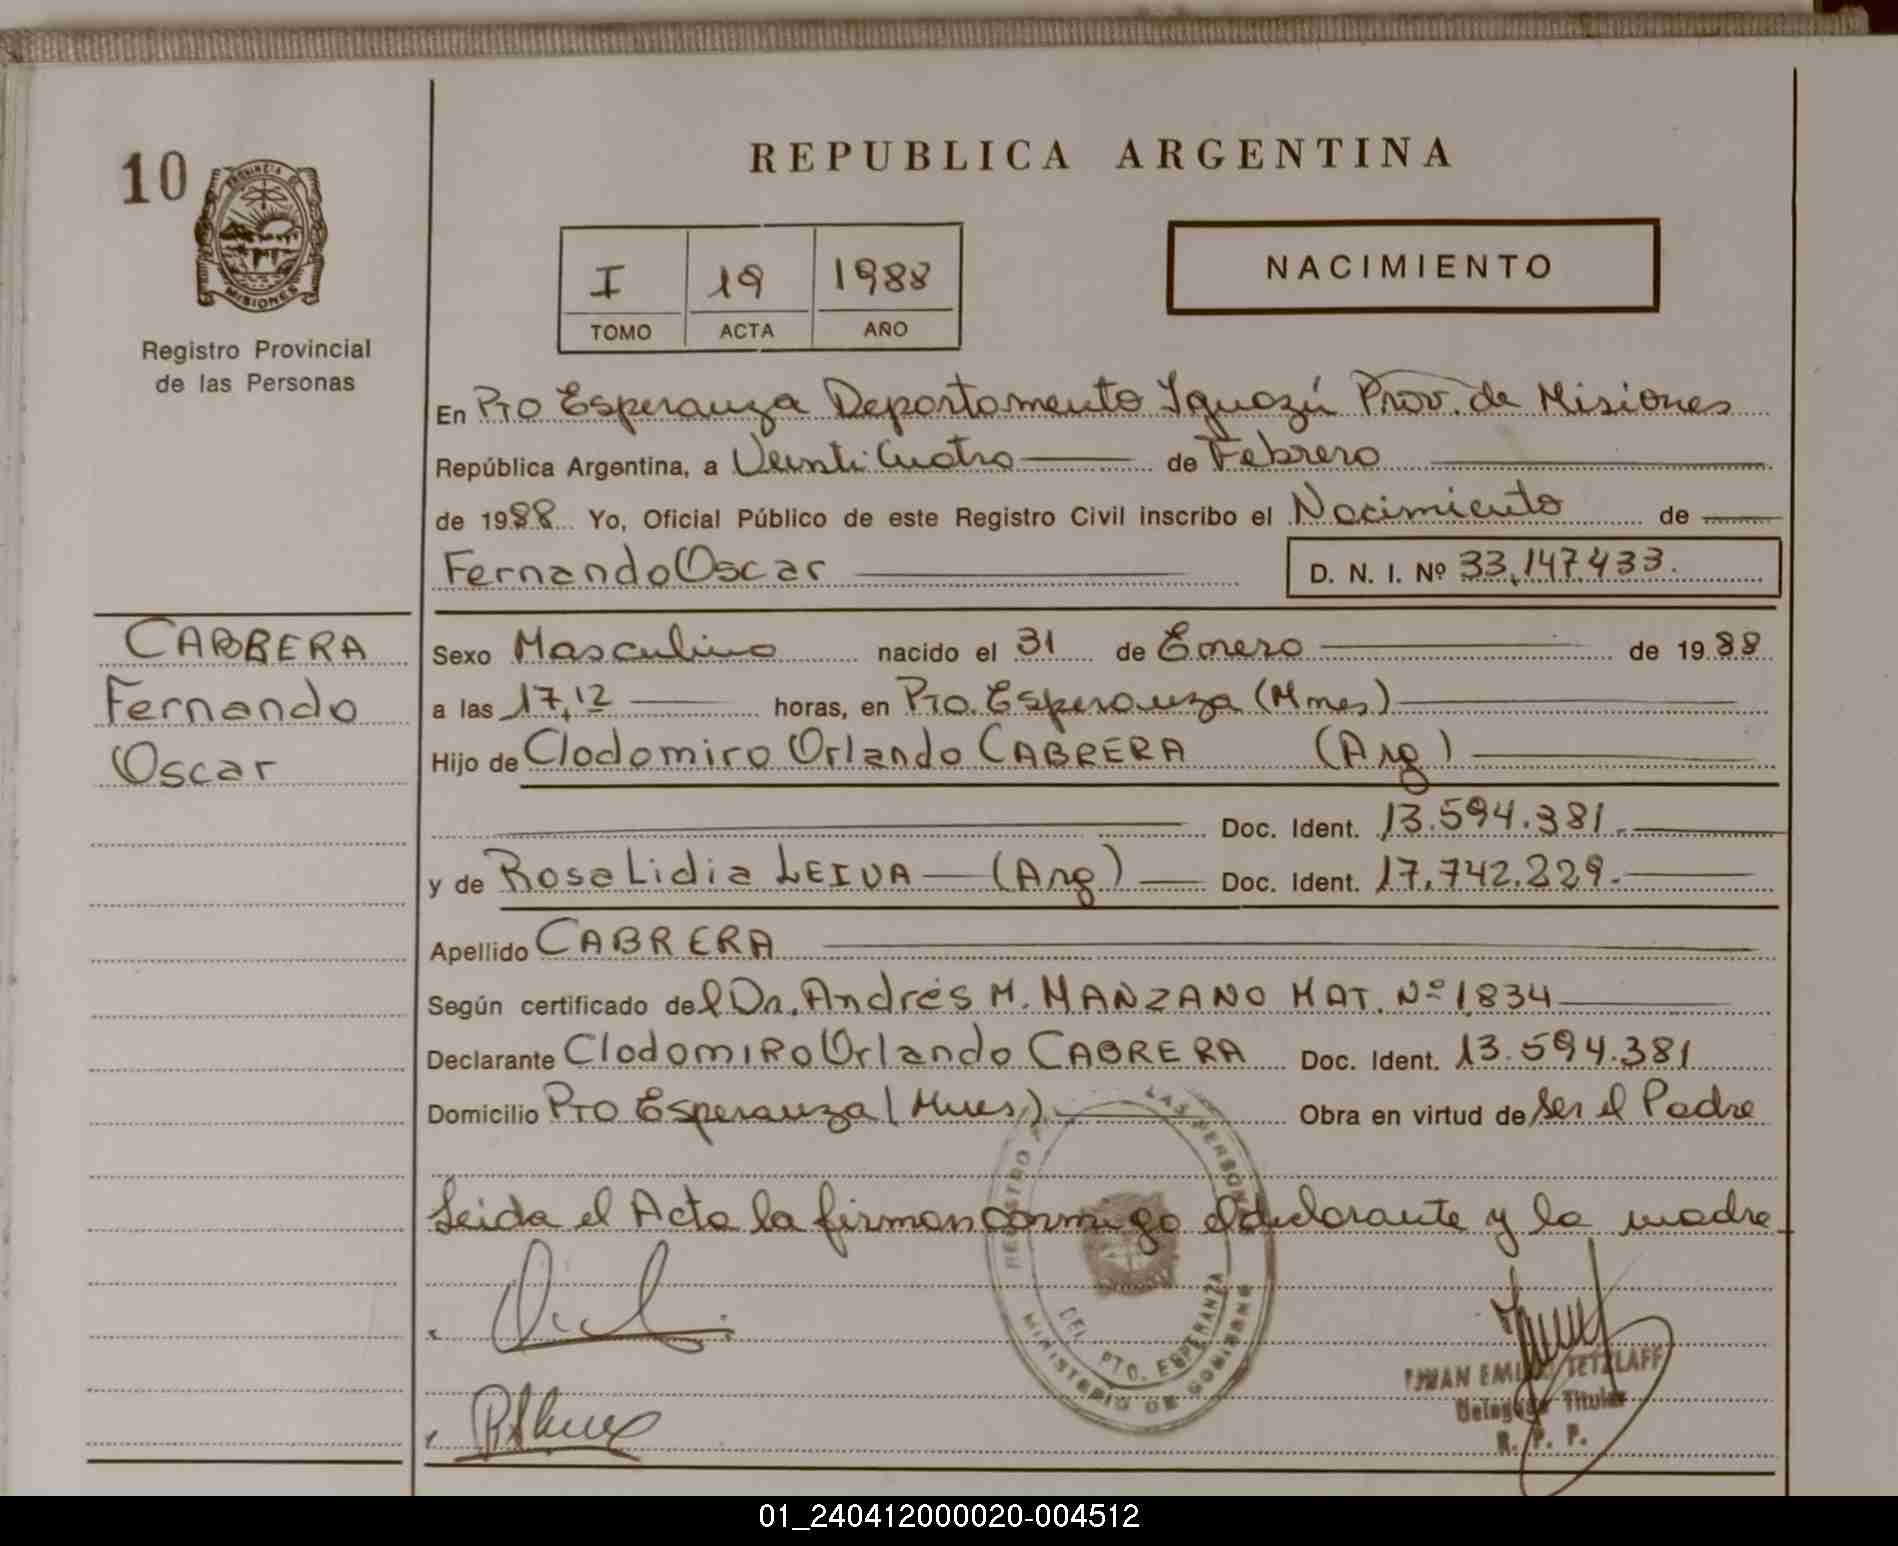 10
PROVINCIA DE
MISIONES
Registro Provincial
de las Personas
REPUBLICA ARGENTINA
I 19 1988
TOMO ACTA AÑO
NACIMIENTO
En Pto Esperanza Departamento Iguazú Prov. de Misiones
República Argentina, a Veinti Cuatro de Febrero
de 1988 Yo, Oficial Público de este Registro Civil inscribo el Nacimiento de
Fernando Oscar
D. N. I. Nº 33.147.433.
CABRERA
Fernando
Oscar
Sexo Masculino nacido el 31 de Enero de 1988
a las 17,12 horas, en Pto. Esperanza (Mnes)
Hijo de Clodomiro Orlando CABRERA (Arg)
Doc. Ident. 13.594.381.
y de Rosa Lidia LEIVA (Arg) Doc. Ident. 17.742.229.
Apellido CABRERA
Según certificado del Dr. Andrés M. MANZANO MAT. Nº 1834
Declarante Clodomiro Orlando CABRERA Doc. Ident. 13.594.381
Domicilio Pto Esperanza (Mnes) Obra en virtud de ser el Padre
Leida el Acta la firman conmigo el declarante y la madre
REGISTRO LAS PERSONAS
DEL PTO. ESPERANZA
MINISTERIO DE GOBIERNO
JUAN EMILIO TETZLAFF
Delegado Titular
R. P. P.
01_240412000020-004512